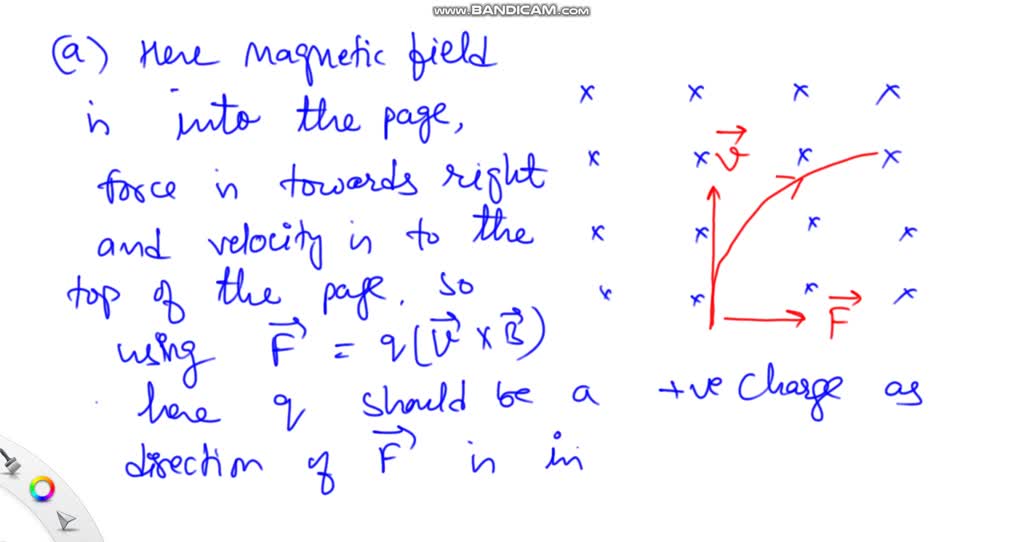 www.BANDICAM.com
(a) Here magnetic field
is into the page,
force is towards right
and velocity is to the
top of the page. So
using F⃗ = q(v⃗ × B⃗)
here q should be a +ve charge as
direction of F⃗ is in
x x x x
x x v⃗ x x
x x x x
x x x x
F⃗